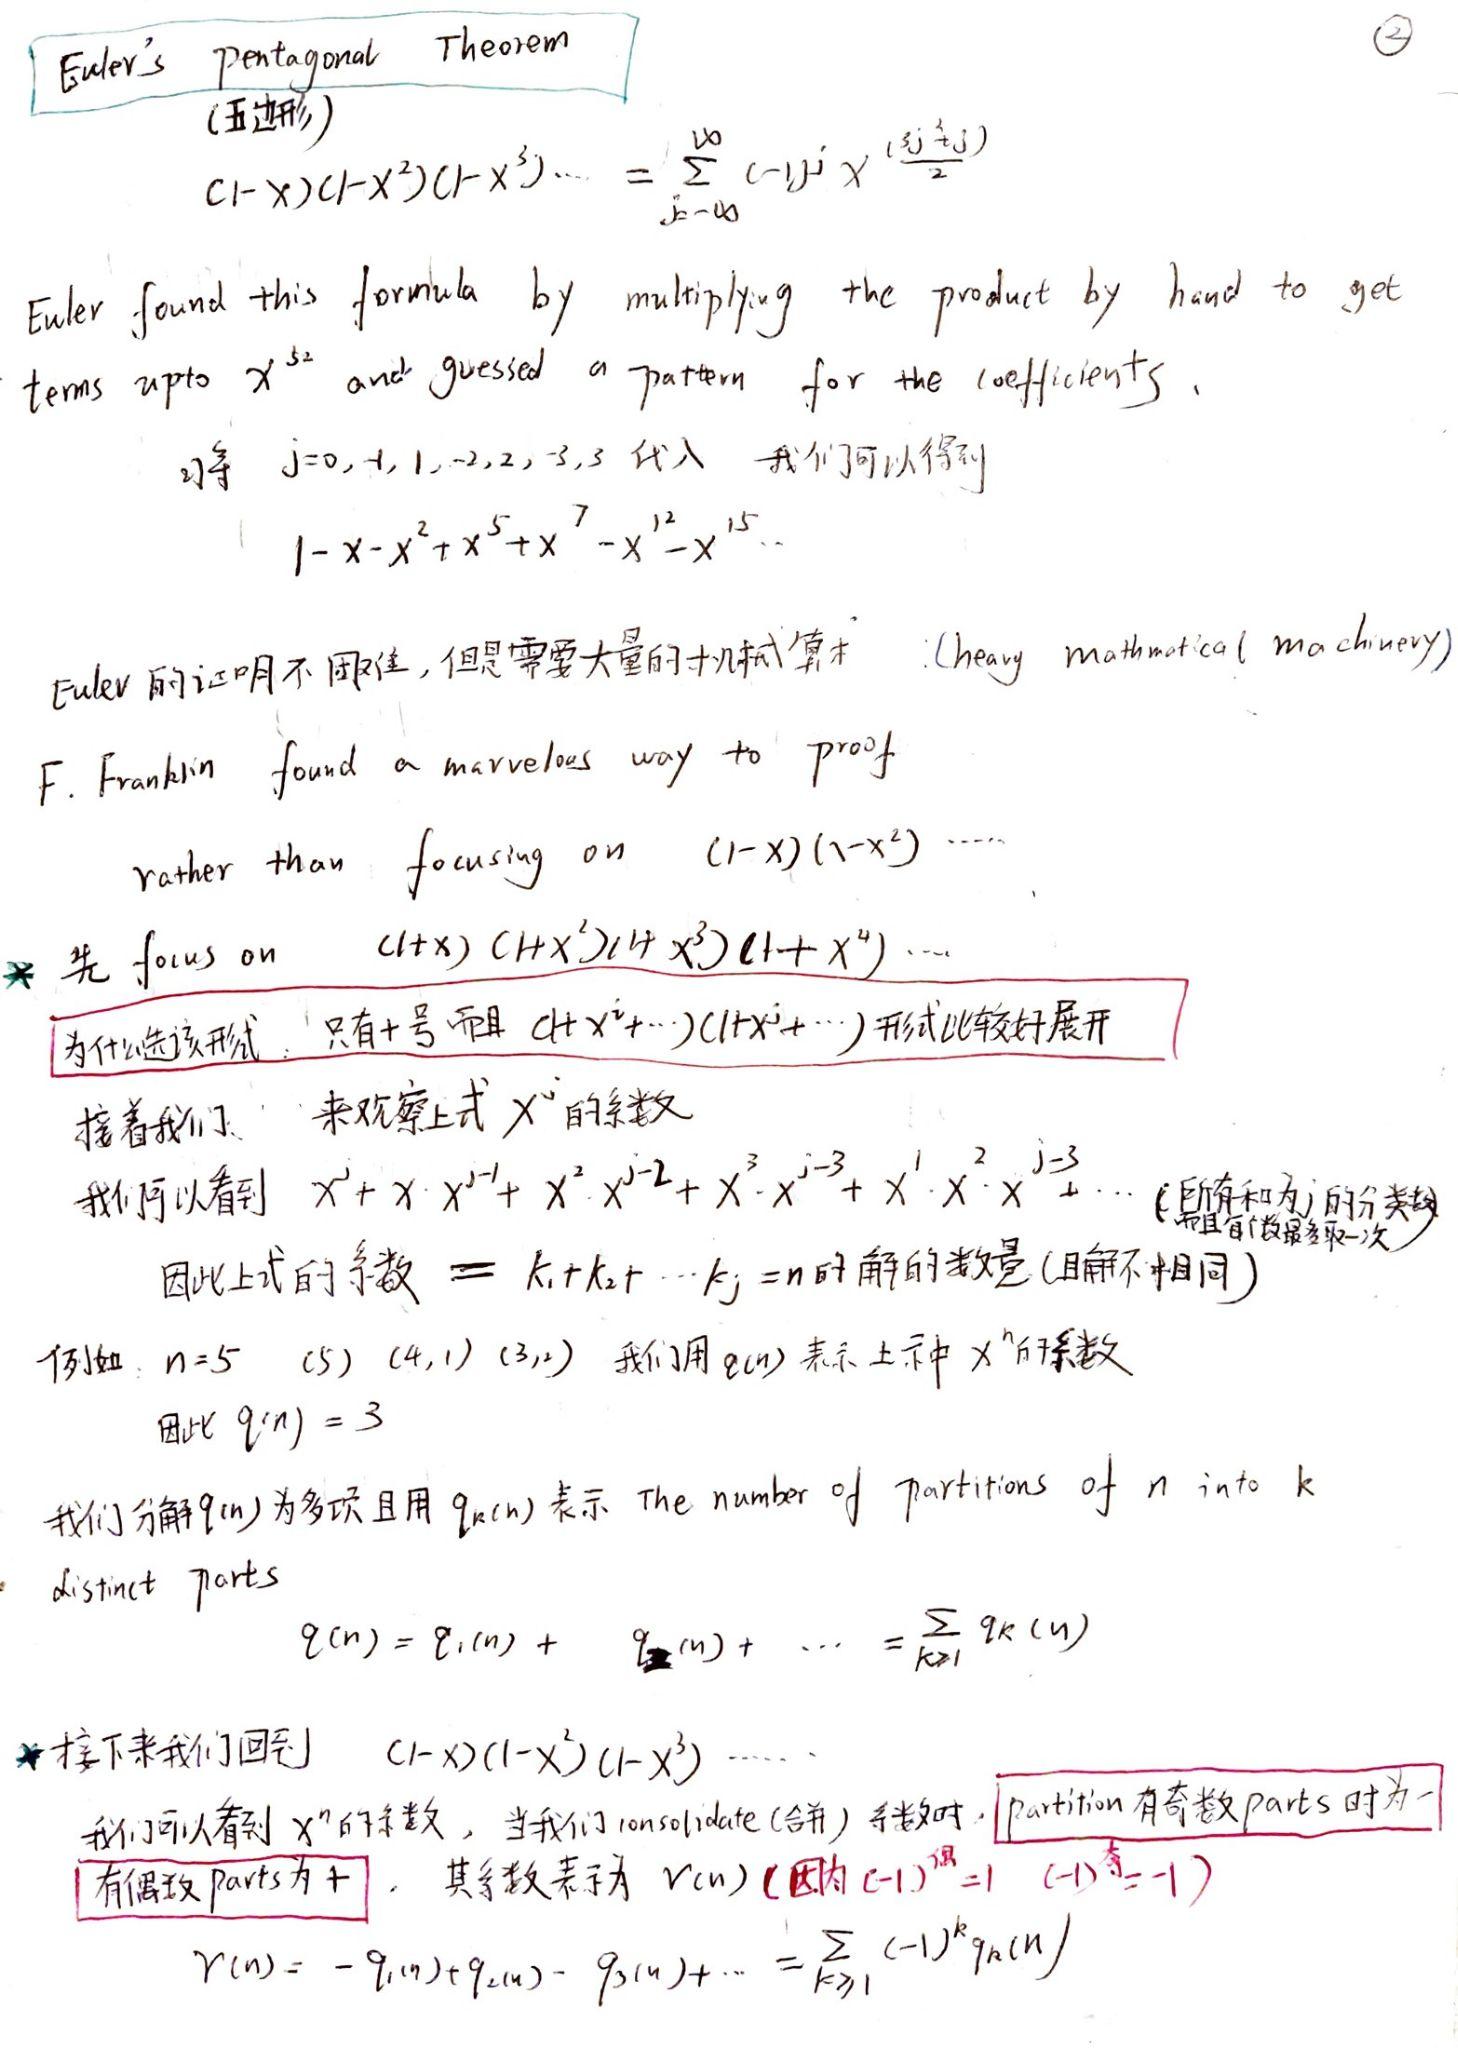 ②
Euler's pentagonal Theorem
(五边形)
(1-x)(1-x²)(1-x³)⋯ = ∑_{j=-∞}^{∞} (-1)^j x^{(3j²+j)/2}
Euler found this formula by multiplying the product by hand to get
terms upto x⁵² and guessed a pattern for the coefficients.
将 j=0,-1,1,-2,2,-3,3 代入 我们可以得到
1-x-x²+x⁵+x⁷-x¹²-x¹⁵⋯
Euler 的证明不困难,但是需要大量的机械算术 (heavy mathmatical machinery)
F. Franklin found a marvelous way to proof
rather than focusing on (1-x)(1-x²) ⋯⋯
* 先 focus on (1+x)(1+x²)(1+x³)(1+x⁴)⋯
为什么选该形式: 只有+号而且 (1+xⁱ+⋯)(1+xʲ+⋯) 形式比较好展开
接着我们 来观察上式 xʲ 的系数
我们可以看到 xʲ + x·x^{j-1} + x²·x^{j-2} + x³·x^{j-3} + x¹·x²·x^{j-3} + ⋯ (所有和为j的分类数
而且每个数最多取一次)
因此上式的系数 = k₁+k₂+⋯kⱼ=n的解的数量(且解不相同)
例如: n=5 (5) (4,1) (3,2) 我们用q(n) 表示上示中 xⁿ的系数
因此 q(n) = 3
我们分解q(n)为多项且用 qₖ(n) 表示 The number of partitions of n into k
distinct parts
q(n) = q₁(n) + q₂(n) + ⋯ = ∑_{k≥1} qₖ(n)
* 接下来我们回到 (1-x)(1-x²)(1-x³) ⋯⋯
我们可以看到 xⁿ的系数, 当我们consolidate(合并) 系数时, partition有奇数parts时为-
有偶数parts为+. 其系数表示为 r(n) (因为 (-1)^偶=1 (-1)^奇=-1)
r(n) = -q₁(n)+q₂(n)-q₃(n)+⋯ = ∑_{k≥1} (-1)^k qₖ(n)